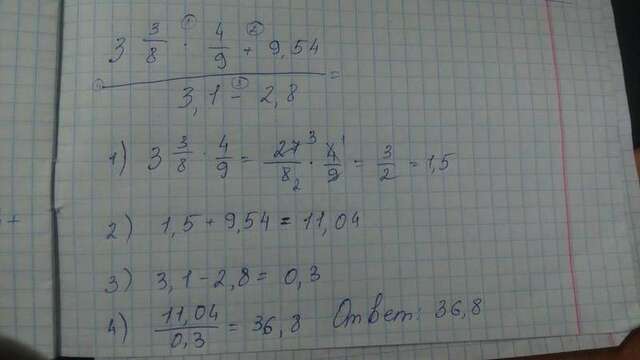 3 3/8 · 4/9 + 9,54
3,1 - 2,8 =
1) 3 3/8 · 4/9 = 27/8 · 4/9 = 3/2 = 1,5
3 1
2
2) 1,5 + 9,54 = 11,04
3) 3,1 - 2,8 = 0,3
4) 11,04/0,3 = 36,8 Ответ: 36,8